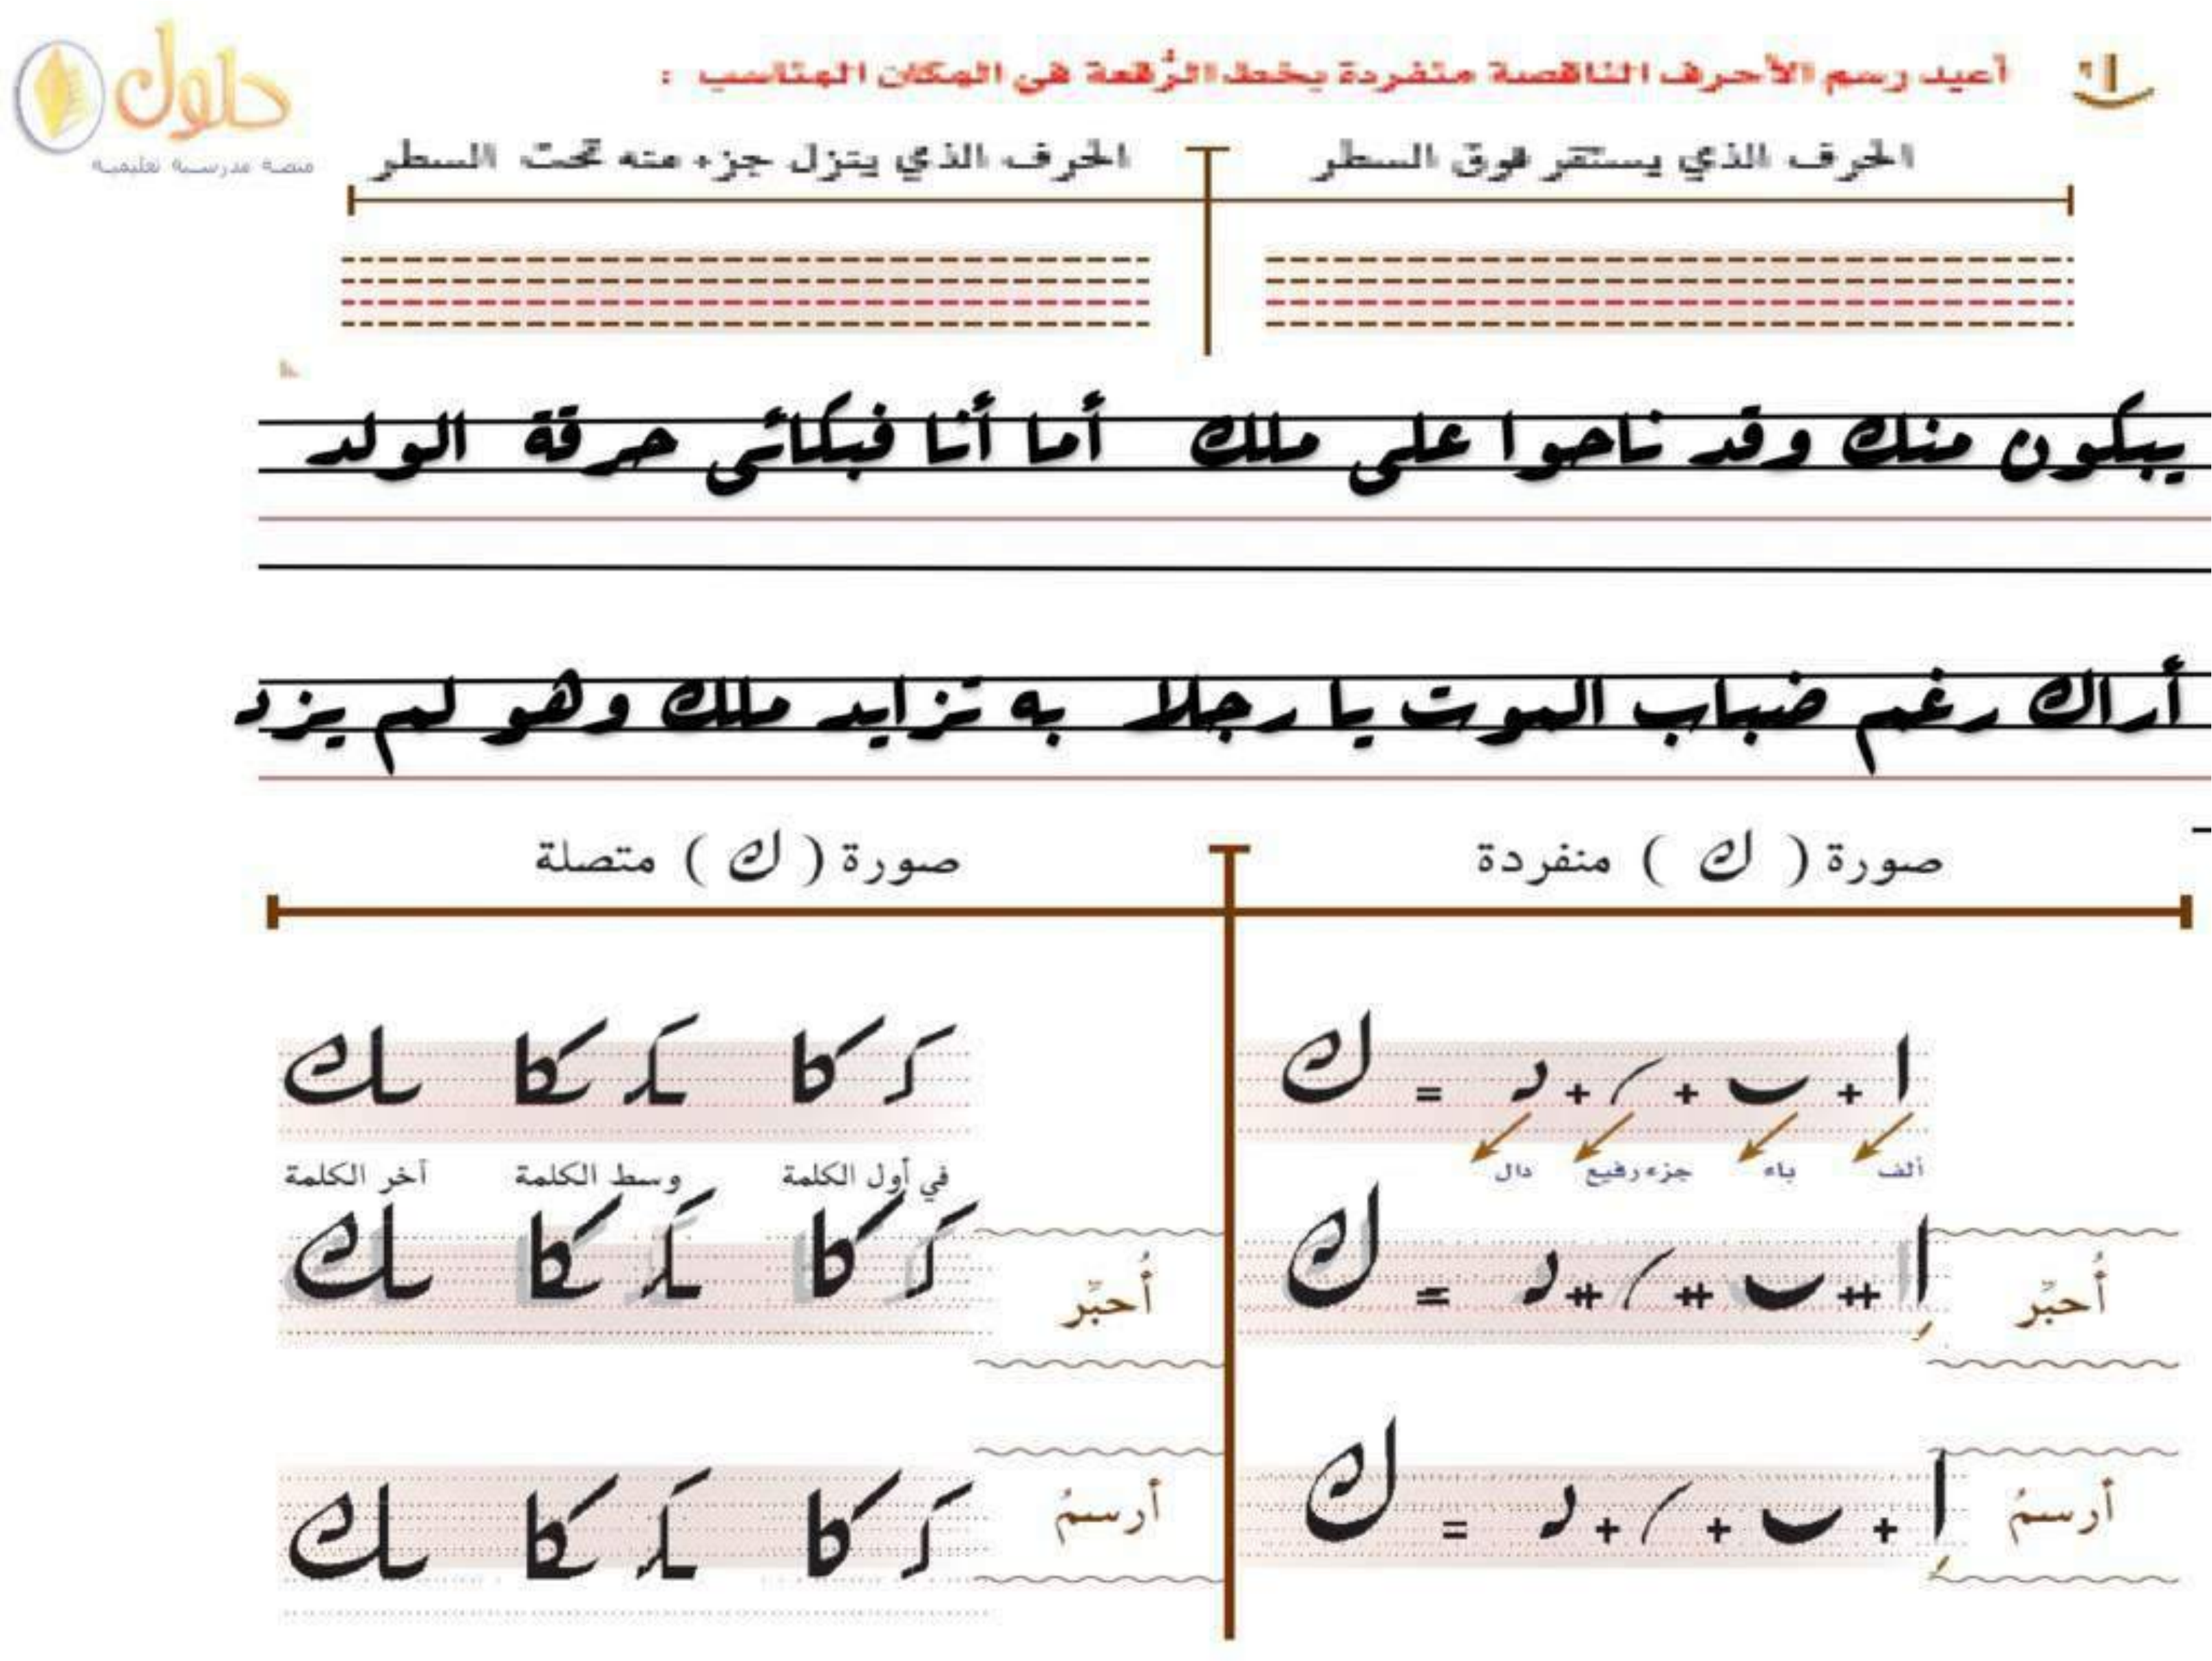 حلول
منصة مدرسية تعليمية
أعيد رسم الأحرف الناقصة منفردة بخط الرُّقعة في المكان المناسب :
الحرف الذي يستقر فوق السطر
الحرف الذي ينزل جزء منه تحت السطر
يبكون منك وقد ناحوا على ملك أما أنا فبكائى حرقة الولد
أراك رغم ضباب الموت يا رجلا به تزايد ملك وهو لم يزد
صورة ( ك ) منفردة
صورة ( ك ) متصلة
ا + ب + / + د = ك
ألف باء جزء رفيع دال
كا كا ك
في أول الكلمة وسط الكلمة آخر الكلمة
أُحبِّر
ا + ب + / + د = ك
أُحبِّر
كا كا ك
أرسمُ
ا + ب + / + د = ك
أرسمُ
كا كا ك